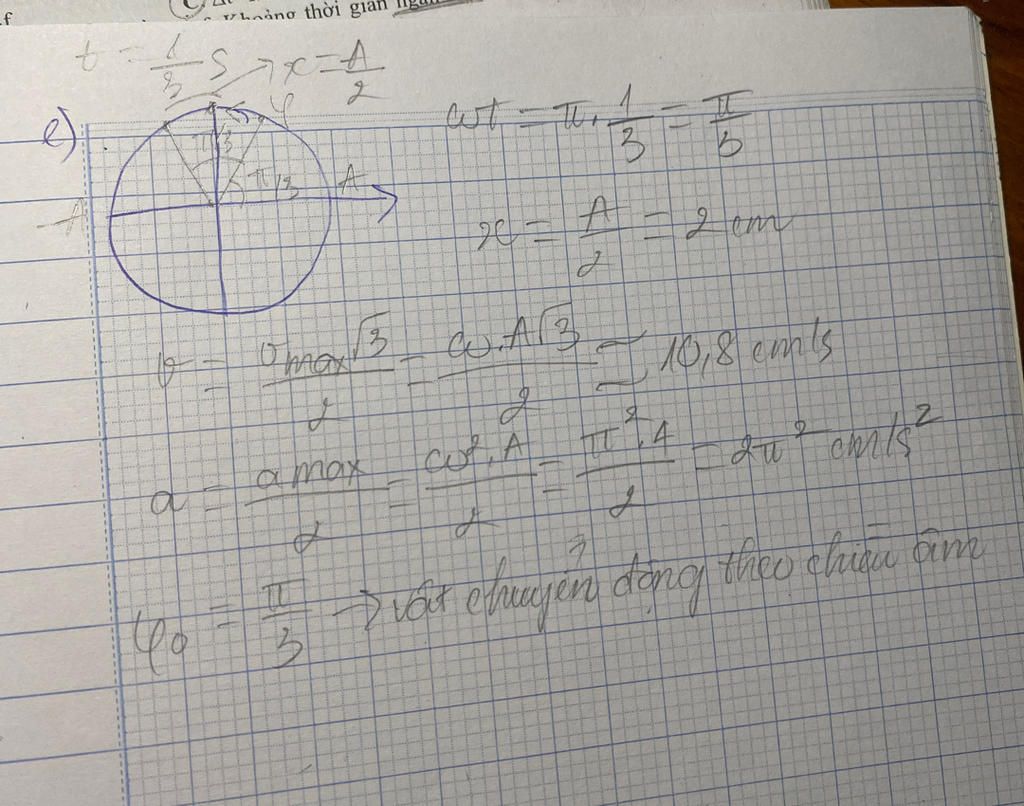 Khoảng thời gian
t = 1/3 s → x = A/2
e)
φ
π/3
π/3
A
-A
ωt = π. 1/3 = π/3
x = A/2 = 2 cm
v = vmax√3/2 = ω.A√3/2 ≈ 10,8 cm/s
a = amax/2 = ω².A/2 = π².4/2 = 2π² cm/s²
φ0 = π/3 → vật chuyển động theo chiều âm